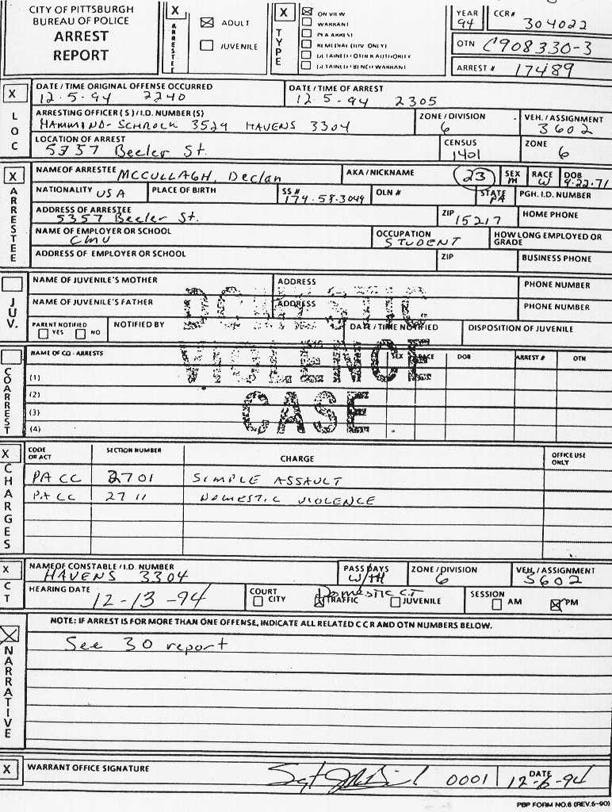 CITY OF PITTSBURGH
BUREAU OF POLICE
ARREST
REPORT
X ARRESTEE
ADULT
JUVENILE
X TYPE
ON VIEW
WARRANT
YEAR 94 CCR# 304022
OTN C908330-3
ARREST # 17489
X LOC
DATE / TIME ORIGINAL OFFENSE OCCURRED DATE / TIME OF ARREST
12-5-94 2240 12-5-94 2305
ARRESTING OFFICER (S) / I.D. NUMBER (S) ZONE / DIVISION VEH. / ASSIGNMENT
3529 HAVENS 3304 6 3602
LOCATION OF ARREST CENSUS ZONE
5357 Beeler St. 1401 6
X ARRESTEE
NAME OF ARRESTEE AKA / NICKNAME 23 SEX RACE DOB
MCCULLAGH, Declan M W 4-22-71
NATIONALITY USA PLACE OF BIRTH SS# OLN # STATE PA PGH. I.D. NUMBER
ADDRESS OF ARRESTEE ZIP 15217 HOME PHONE
5357 Beeler St.
NAME OF EMPLOYER OR SCHOOL OCCUPATION HOW LONG EMPLOYED OR GRADE
CMU STUDENT
ADDRESS OF EMPLOYER OR SCHOOL ZIP BUSINESS PHONE
JUV.
NAME OF JUVENILE'S MOTHER ADDRESS PHONE NUMBER
NAME OF JUVENILE'S FATHER ADDRESS PHONE NUMBER
PARENT NOTIFIED YES NO NOTIFIED BY DATE / TIME NOTIFIED DISPOSITION OF JUVENILE
DOMESTIC
VIOLENCE
CASE
COARREST
NAME OF CO-ARRESTS SEX RACE DOB ARREST # OTN
(1)
(2)
(3)
(4)
X CHARGES
CODE OR ACT SECTION NUMBER CHARGE OFFICE USE ONLY
PA CC 2701 SIMPLE ASSAULT
PA CC 2711 DOMESTIC VIOLENCE
X CT
NAME OF CONSTABLE / I.D. NUMBER PASS DAYS ZONE / DIVISION VEH. / ASSIGNMENT
HAVENS 3304 W/TH 6 3602
HEARING DATE COURT Domestic CT SESSION
12-13-94 CITY TRAFFIC JUVENILE AM PM
NOTE: IF ARREST IS FOR MORE THAN ONE OFFENSE, INDICATE ALL RELATED CCR AND OTN NUMBERS BELOW.
NARRATIVE
See 30 report
X WARRANT OFFICE SIGNATURE Sgt 0001 DATE 12-6-94
PBP FORM NO.6 (REV.6-90)